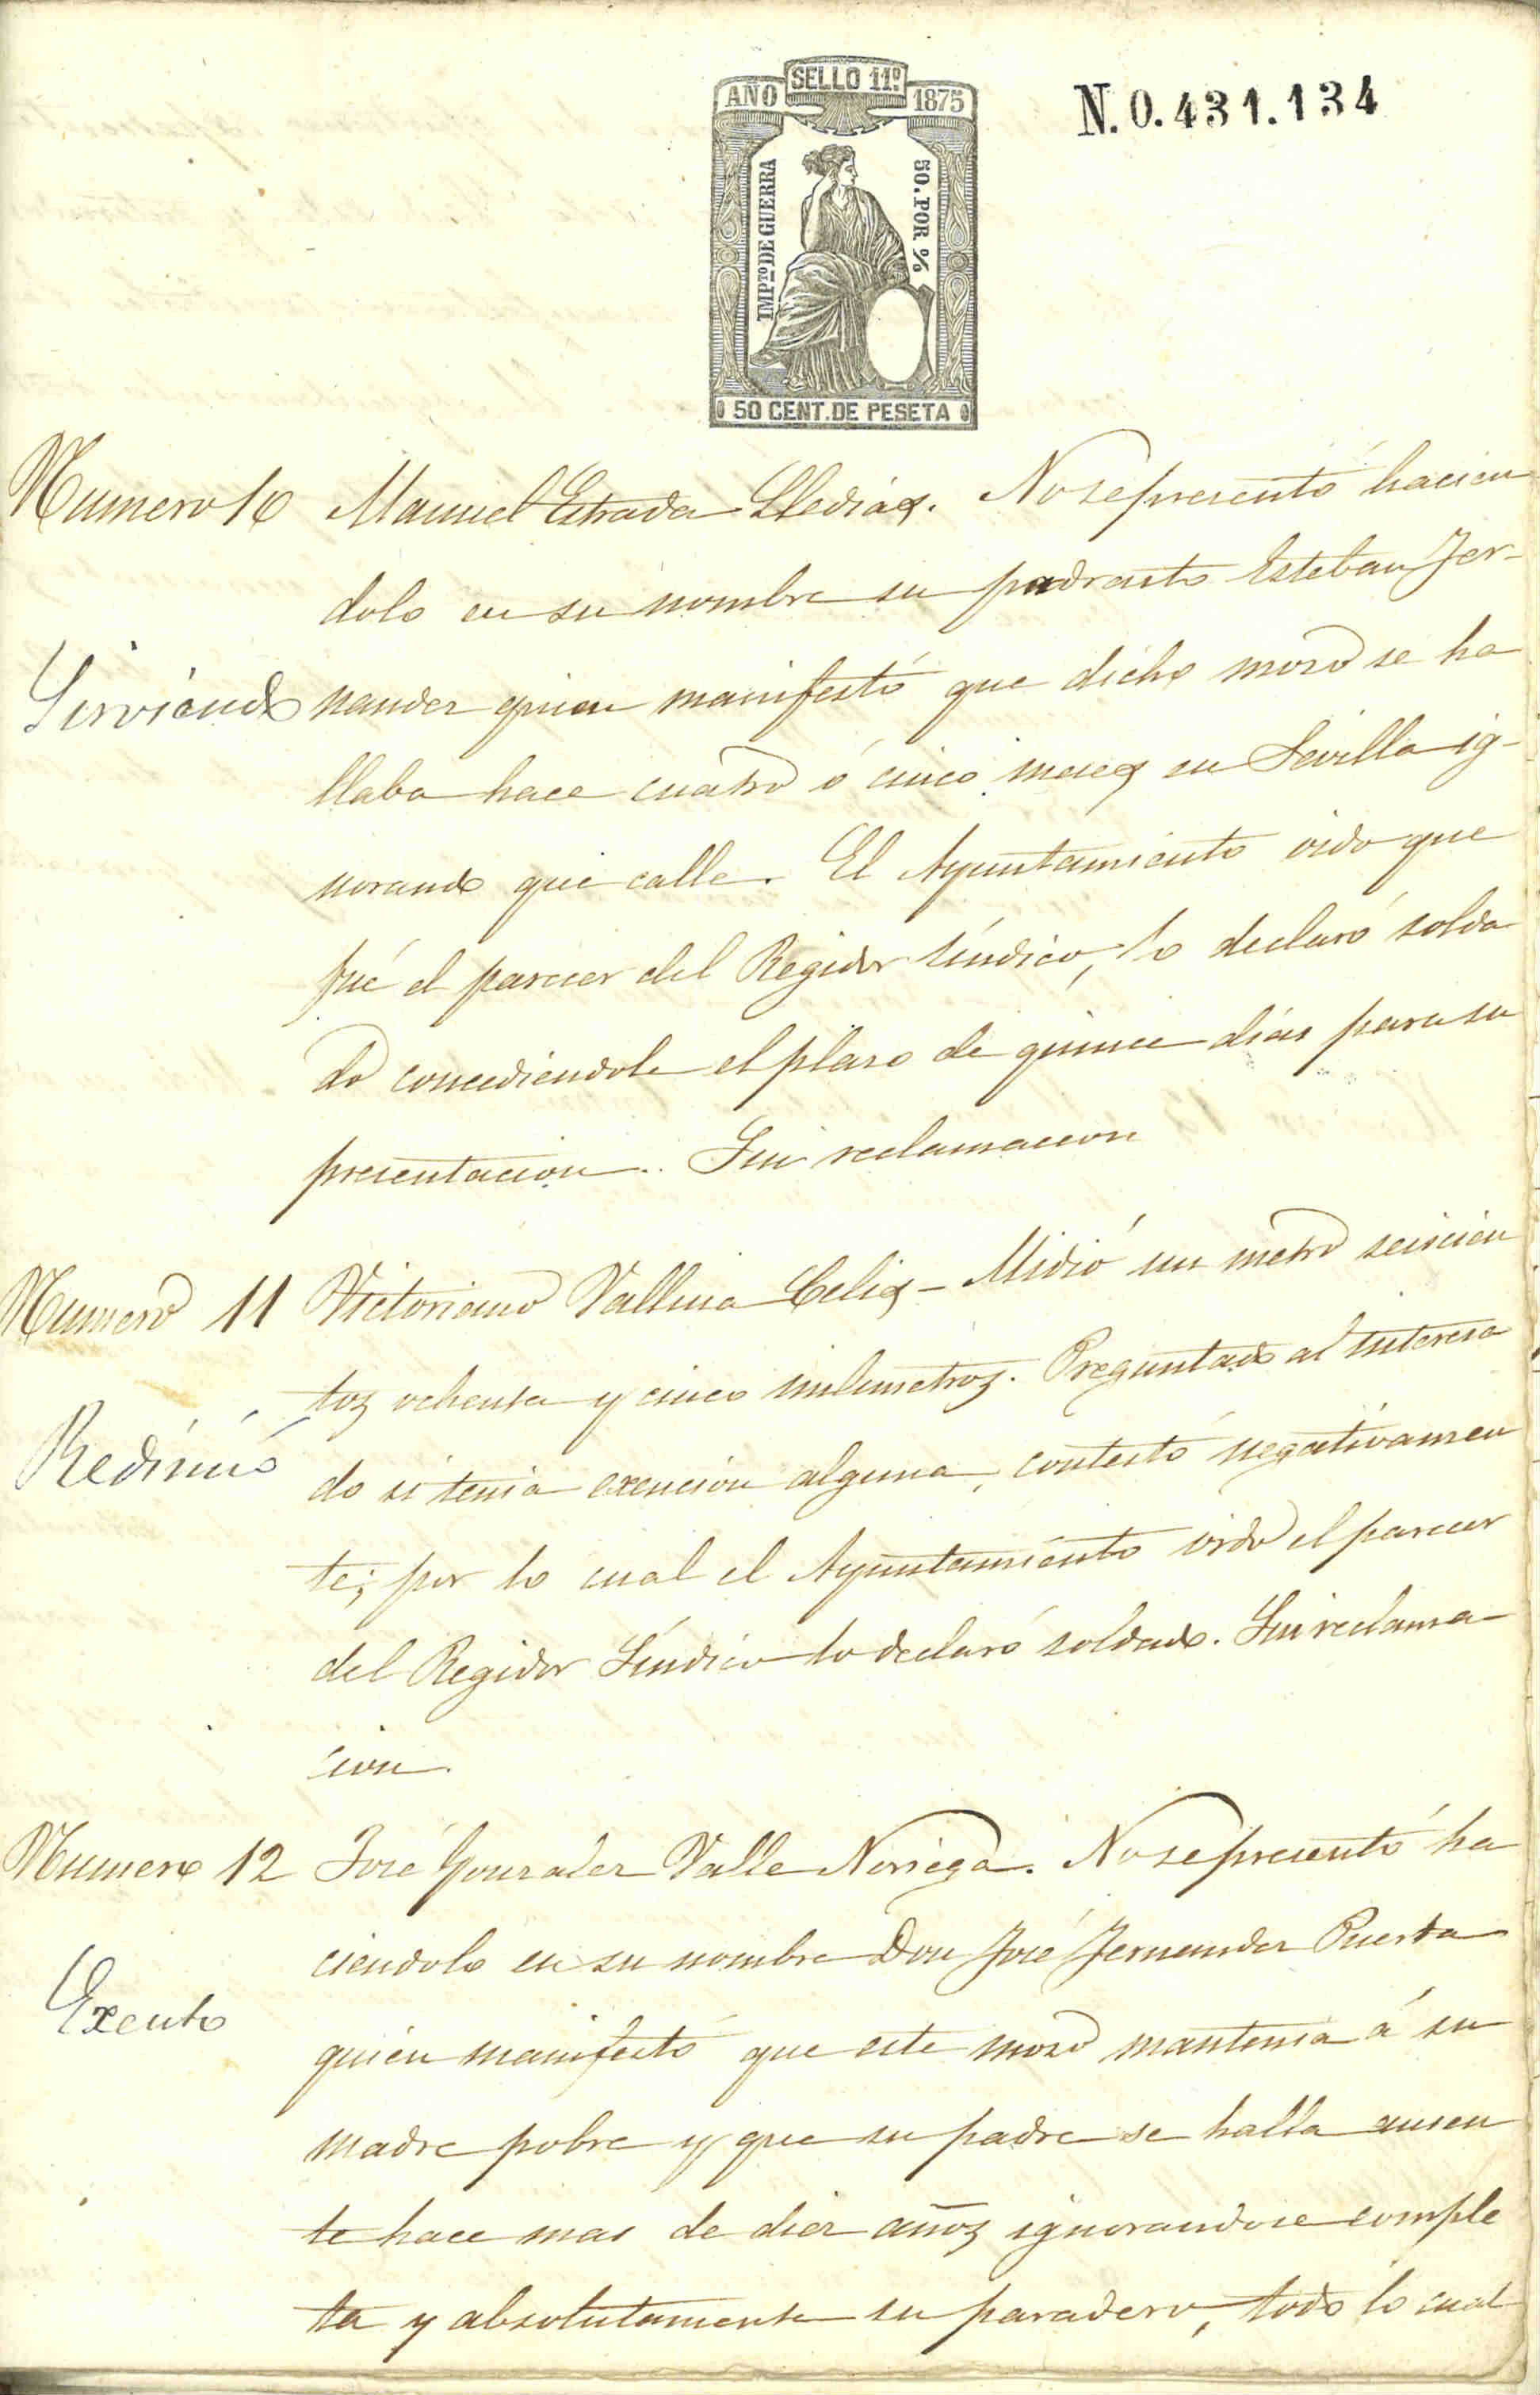 SELLO 11º
AÑO 1875
N.0.431.134
IMPTO DE GUERRA
50 POR %
50 CENT. DE PESETA
Numero 10 Manuel Estrada Lledias. No se presentó hacien
dolo en su nombre su padrasto Esteban Fer-
Sirviendo nandez quien manifestó que dicho mozo se ha
llaba hace cuatro ó cinco meses en Sevilla ig-
norando que calle. El Ayuntamiento oido que
fué el parecer del Regidor Síndico, lo declaró solda
do concediendole el plazo de quince dias para su
presentacion. Sin reclamacion
Numero 11 Victoriano Vallina Celis - Midió un metro seiscien
tos ochenta y cinco milimetros. Preguntado al interesa
Redimió do si tenia exencion alguna, contestó negativamen
te; por lo cual el Ayuntamiento oido el parecer
del Regidor Síndico lo declaró soldado. Sin reclama
cion.
Numero 12 José Gonzalez Valle Noriega. No se presentó ha
ciendolo en su nombre Don José Fernandez Puerta
Exento quien manifestó que este mozo mantenia á su
madre pobre y que su padre se halla ausen
te hace mas de diez años ignorandose comple
ta y absolutamente su paradero, todo lo cual